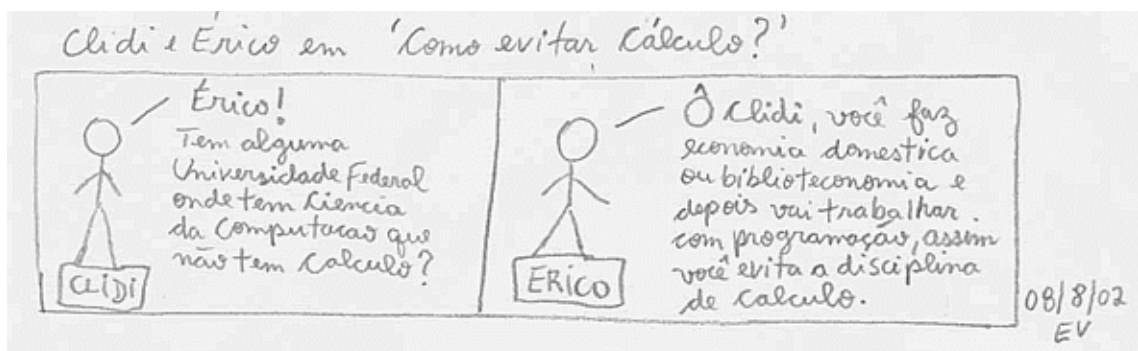 Clidi e Érico em 'Como evitar Cálculo?'
Érico!
Tem alguma
Universidade Federal
onde tem Ciencia
da Computacao que
não tem Calculo?
CLIDI
Ô Clidi, você faz
economia domestica
ou biblioteconomia e
depois vai trabalhar
com programação, assim
você evita a disciplina
de calculo.
ERICO
08/8/02
EV